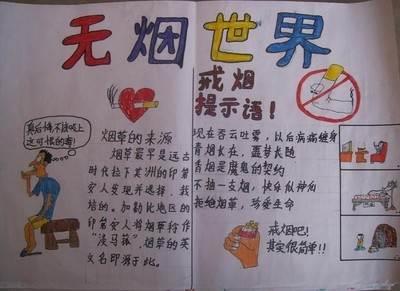 无烟世界
真后悔，不该吸上
这可恨的毒！
烟草的来源
烟草最早是远古
时代拉丁美洲的印第
安人发现并选择、栽
培的。加勒比地区的
印第安人将烟草称作
“淡马菰”，烟草的英
文名即源于此。
戒烟
提示语！
现在吞云吐雾，以后病痛缠身
青烟长在，噩梦长随
香烟是魔鬼的契约
不抽一支烟，快乐似神仙
拒绝烟草，珍爱生命
戒烟吧！
其实很简单！！